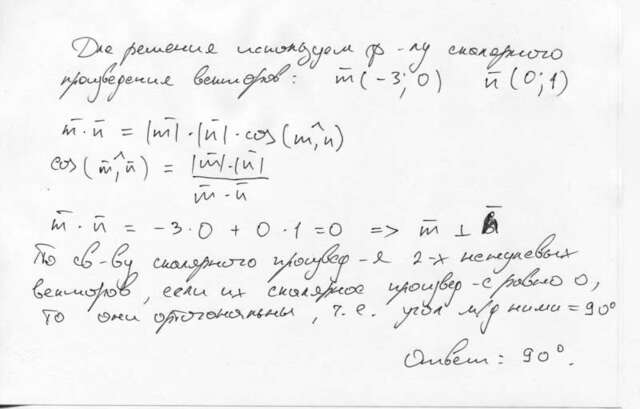 Для решения используем ф-лу скалярного
произведения векторов: m̄(-3; 0) n̄(0; 1)
m̄ · n̄ = |m̄| · |n̄| · cos(m,^n)
cos(m̄,^n̄) = |m̄| · |n̄| / m̄ · n̄
m̄ · n̄ = -3 · 0 + 0 · 1 = 0 => m̄ ⊥ n̄
По св-ву скалярного произвед-я 2-х ненулевых
векторов, если их скалярное произвед-е равно 0,
то они ортогональны, т.е. угол м/д ними = 90°
Ответ: 90°.